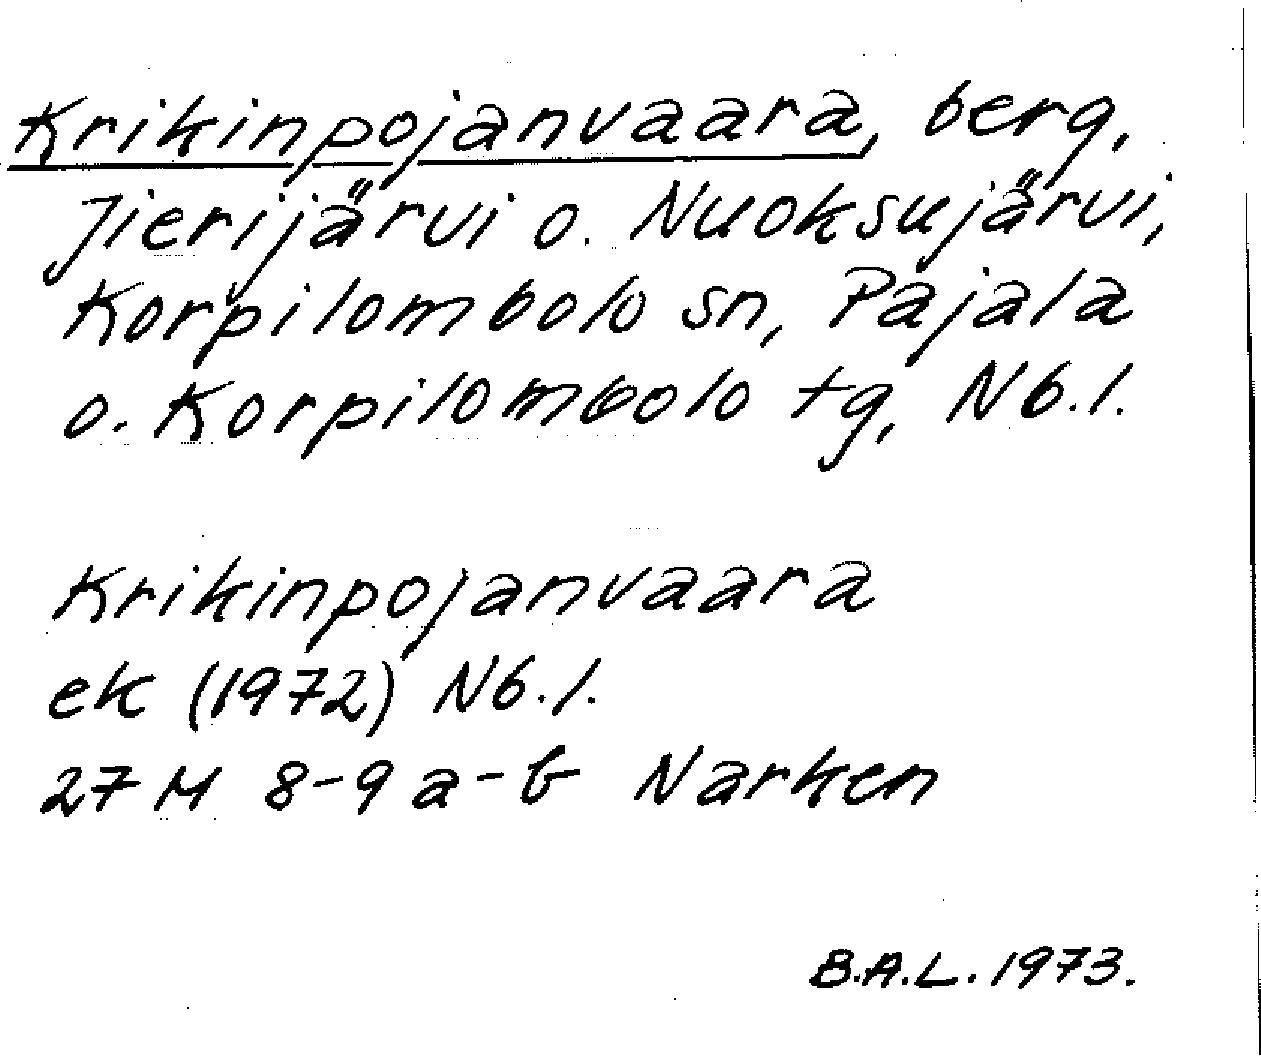 Krikinpojanvaara, berg,
Jierijärvi o. Nuoksujärvi,
Korpilombolo sn, Pajala
o. Korpilombolo tg, Nb.l.
Krikinpojanvaara
ek (1972) Nb.l.
27 M 8-9 a-b Narken
B.A.L. 1973.